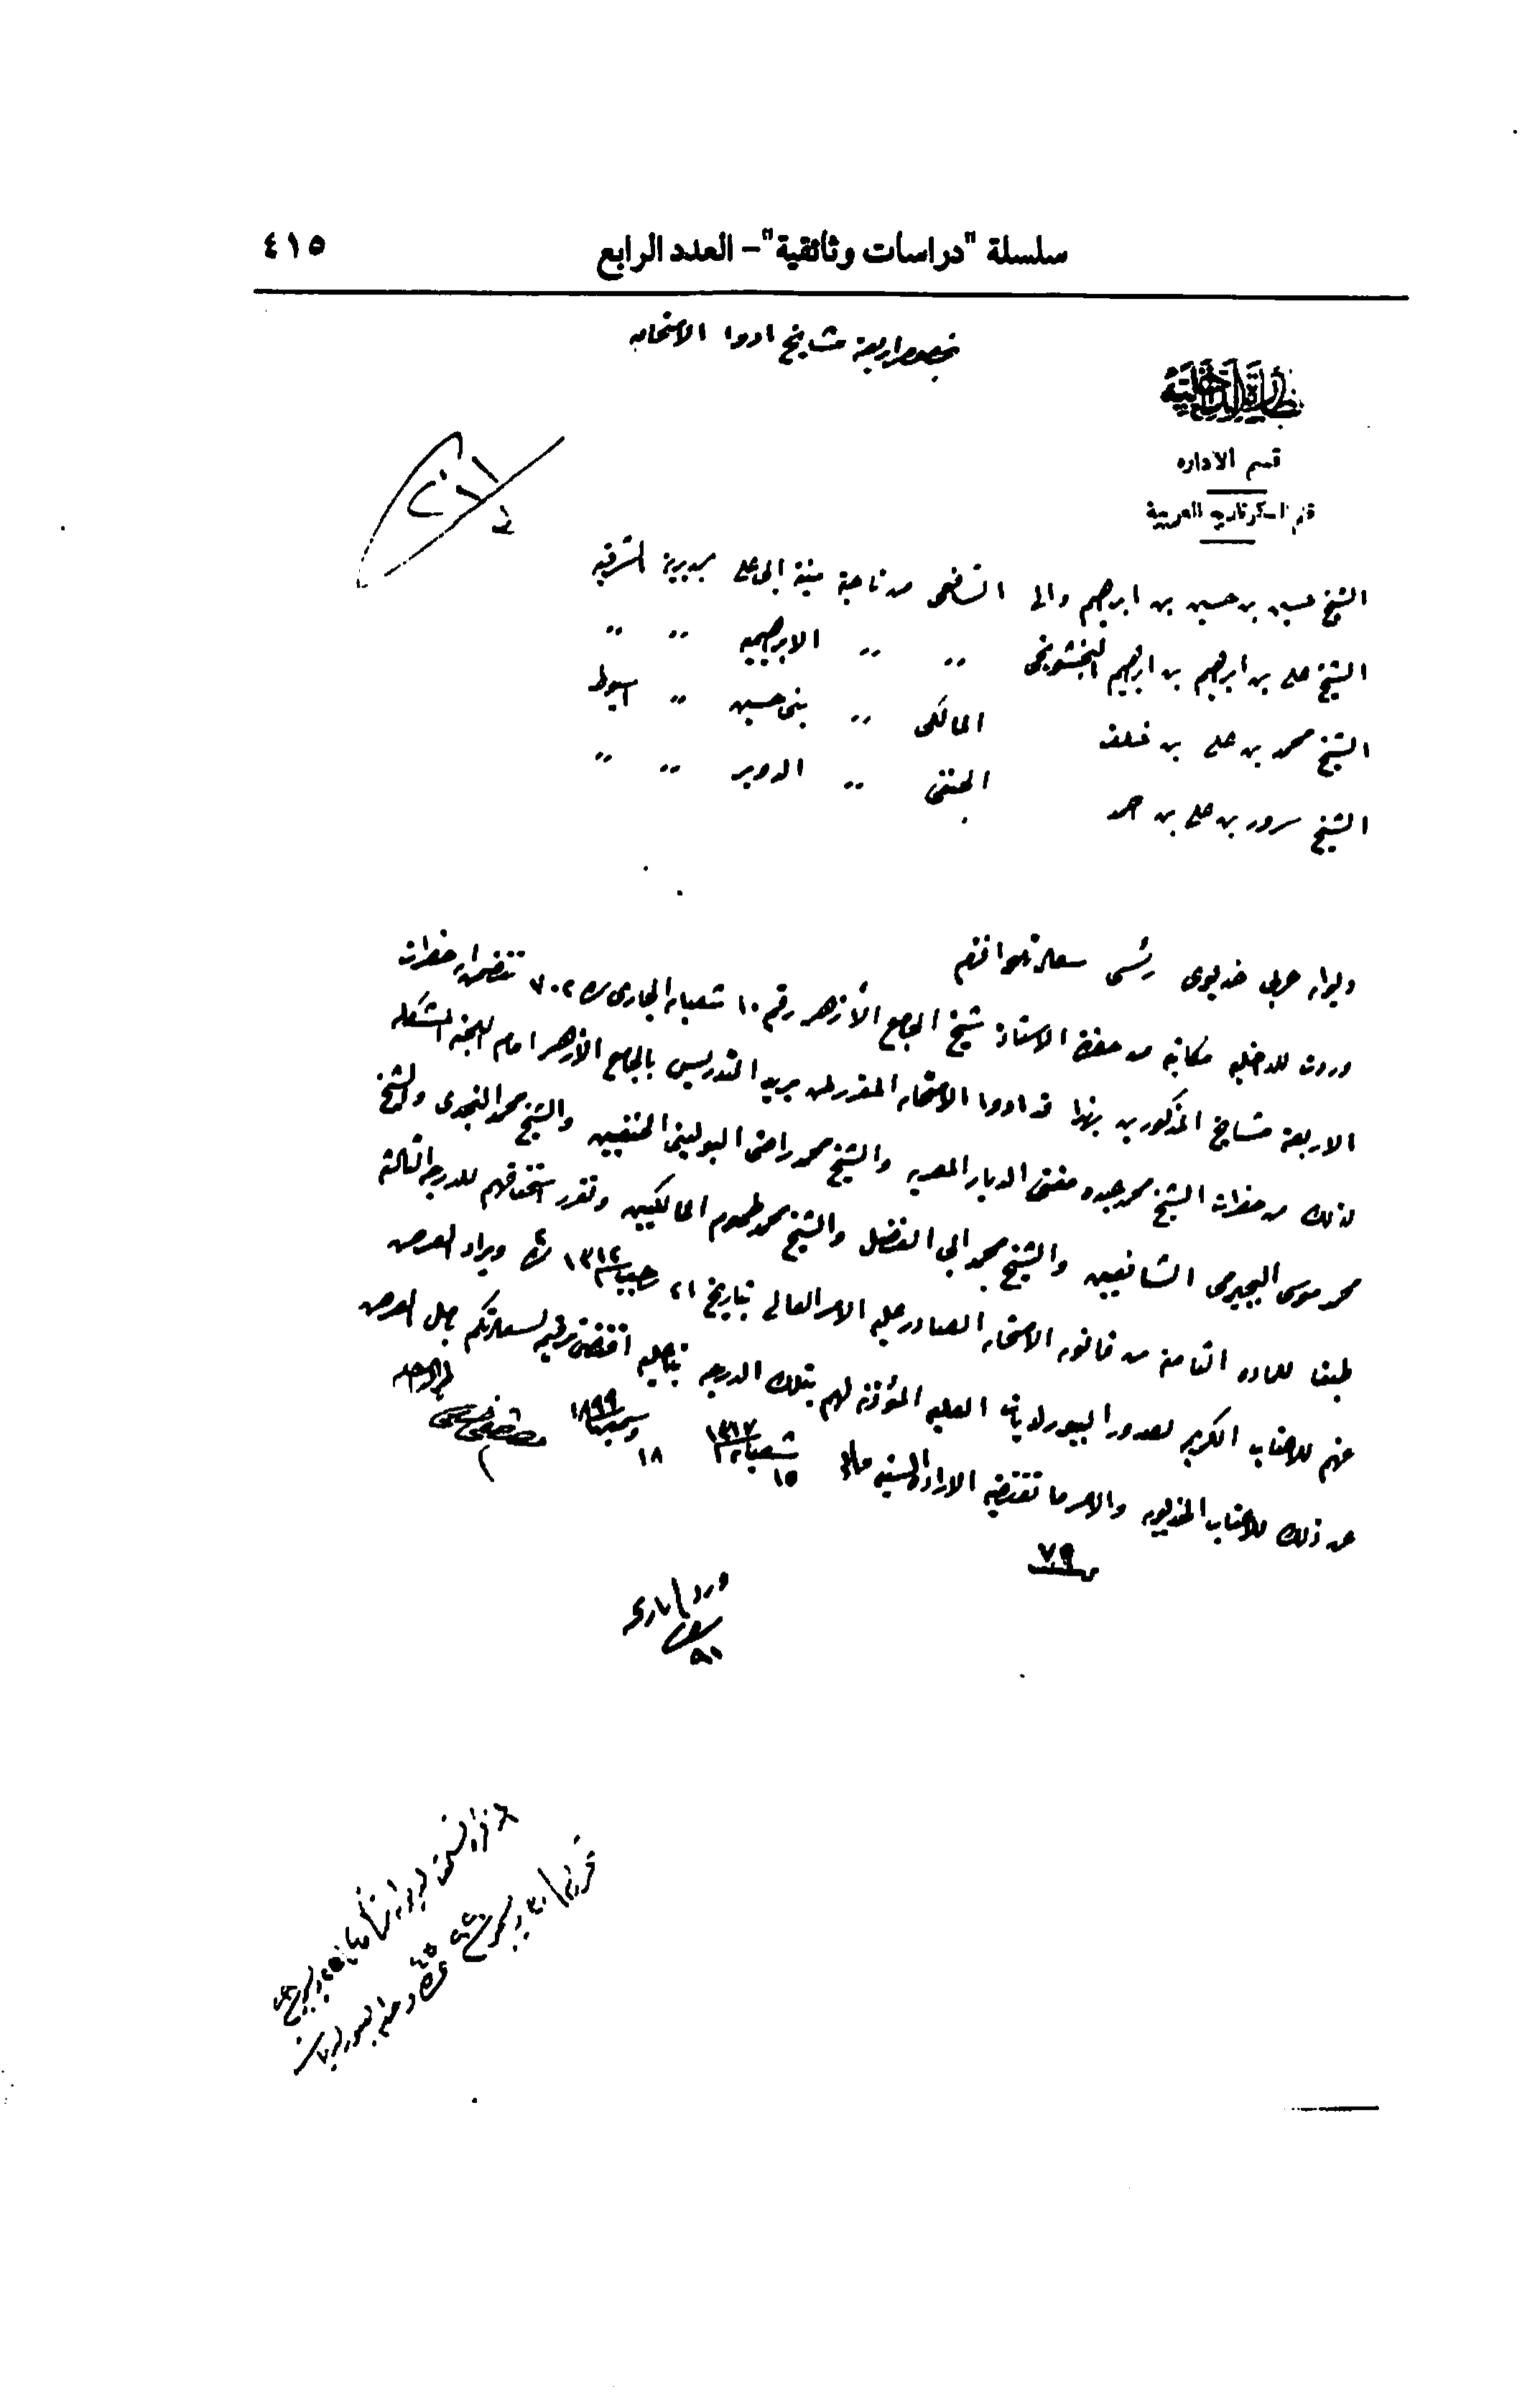 سلسلة "دراسات وثائقية" – العدد الرابع ٤١٥
بخصوص اربعة مشايخ ادوا الامتحان
نظارة الداخلية
قسم الاداره
قلم السكرتاريه العربية
الشيخ حسين بن حسين بن ابرهيم والى الشافعى من ناحية منية ابى على بمديرية الشرقيه
الشيخ على بن ابرهيم بن ابرهيم ,, ,, الابرهيميه ,, ,,
الشيخ محمد بن على بن خلف المالكى ,, بنى حسين ,, اسيوط
الشيخ سرور بن على بن حمد الحنفى ,, الدوير ,, ,,
ديوان عربى خديوى رئيسى سعادتلو افندم
وردت للداخليه مكاتبه من حضرة الاستاذ شيخ الجامع الأزهر رقم ١٠ شعبان الجارى ٧٠٢ تتضمن ان حضرات
الاربعة مشايخ المذكورين بهذا قد ادوا الامتحان المقرر لمن يريد التدريس بالجامع الأزهر امام اللجنه المشكله
لذلك من حضرات الشيخ محمد عبده مفتى الديار المصريه والشيخ محمد راضى البولينى الحنفيين والشيخ محمد النجدى والشيخ
محمد موسى البجيرمى الشافعيين والشيخ محمد ابى الفضل والشيخ محمد طموم المالكيين وتقرر استحقاقهم للدرجه الثالثه
طبقا للماده الثامنه من قانون الامتحان الصادر عليه الامر العالى بتاريخ ٢١ رجب ١٣١٢ ويراد العرض
عنهم للاعتاب الكريمه لصدور البيورلديات العاليه المؤذنه لهم بتلك الدرجه بناعليه اقتضى ترقيمه لسعادتكم بأمل العرض
عن ذلك للاعتاب الخديويه والامر ما تقتضيه الاراده السنيه ١٥ شعبان ١٣١٧ ١٨ دسمبر ١٨٩٩
مصطفى فهمى
٧٩